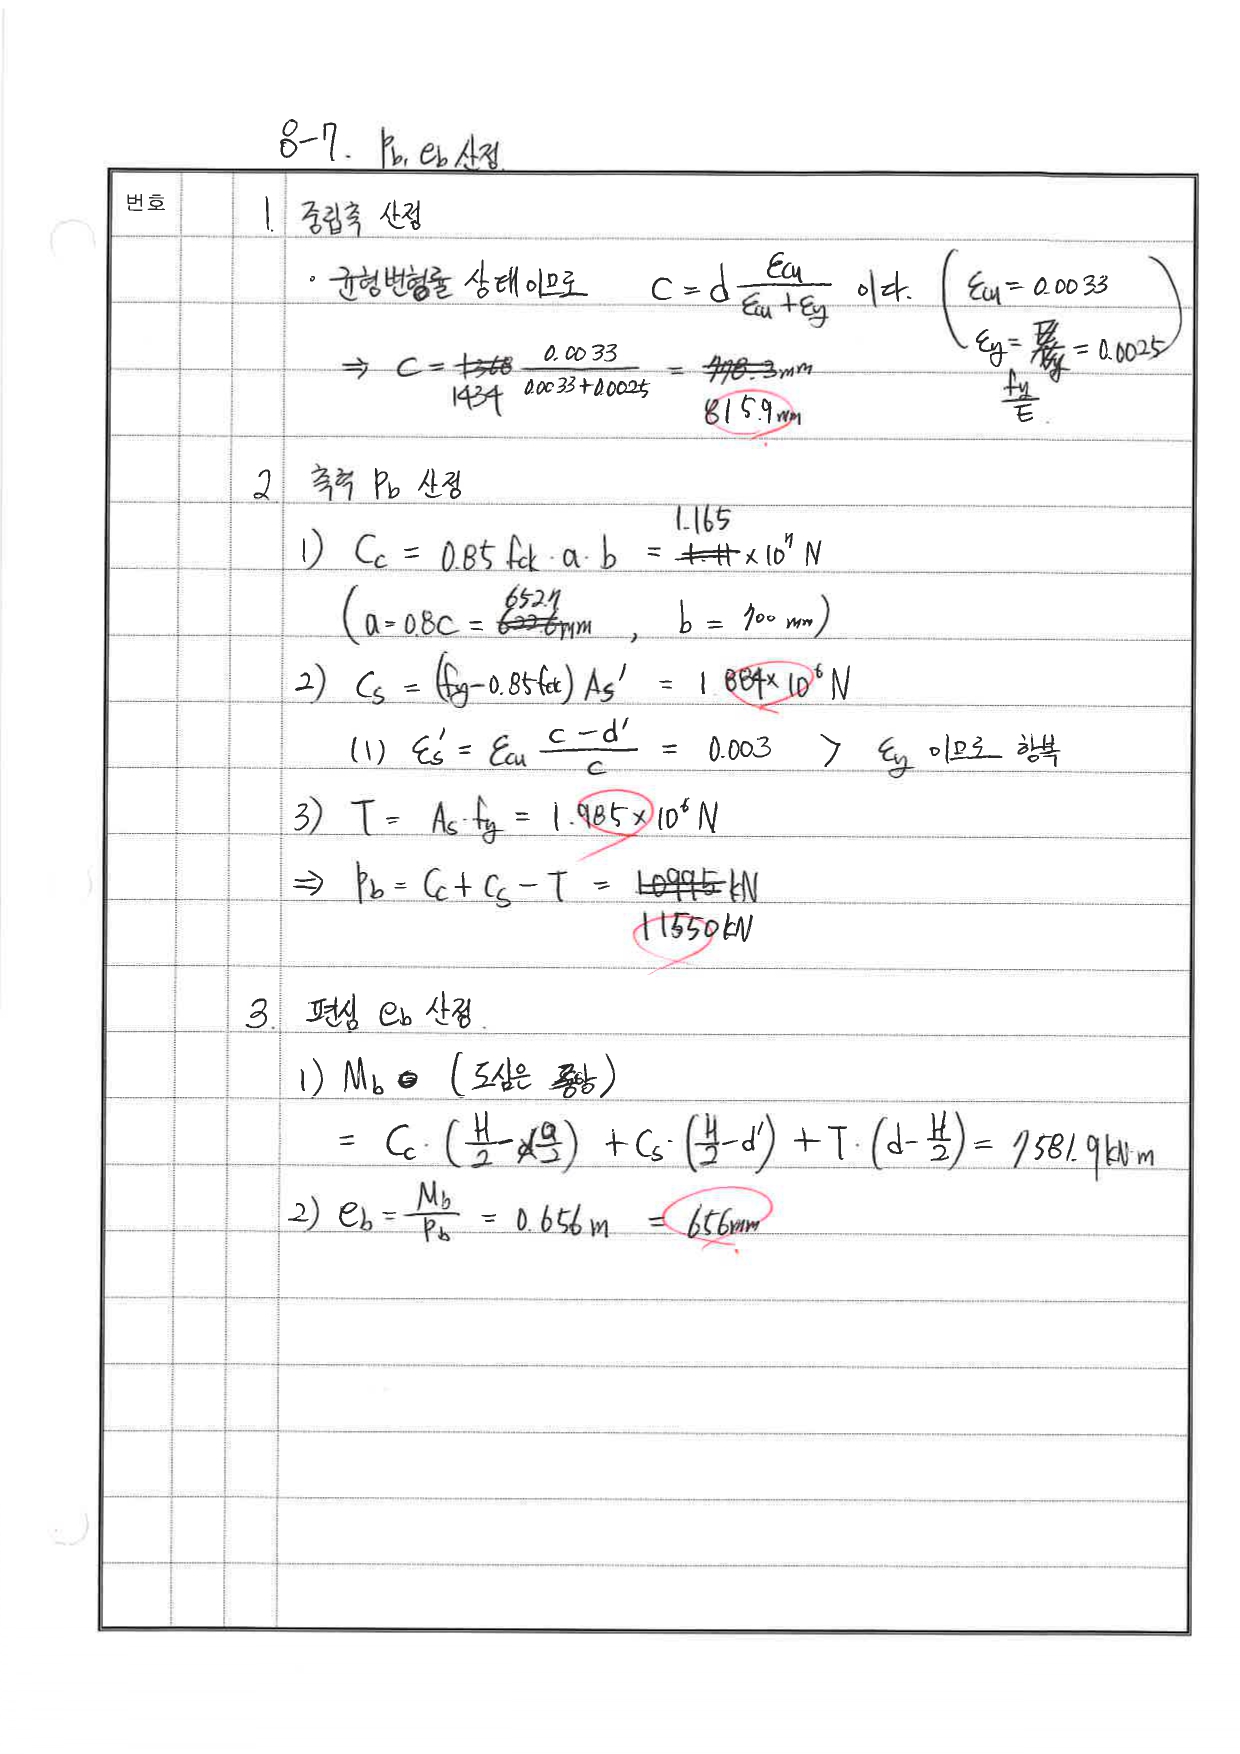 8-7. Pb, eb 산정.
번호
1. 중립축 산정
· 균형변형률 상태이므로 C = d εcu/(εcu + εy) 이다. (εcu = 0.0033
εy = fy/E = 0.0025)
⇒ C = 1434 0.0033/(0.0033+0.0025) = 815.9mm
2. 축력 Pb 산정
1) Cc = 0.85 fck · a · b = 1.165 × 10⁷ N
(a = 0.8C = 652.7mm , b = 700 mm)
2) Cs = (fy - 0.85fck) As' = 1.884 × 10⁶ N
(1) εs' = εcu (c - d')/c = 0.003 > εy 이므로 항복
3) T = As · fy = 1.985 × 10⁶ N
⇒ Pb = Cc + Cs - T = 11550 kN
3. 편심 eb 산정.
1) Mb (도심은 중앙)
= Cc · (H/2 - a/2) + Cs · (H/2 - d') + T · (d - H/2) = 7581.9 kN·m
2) eb = Mb/Pb = 0.656 m = 656mm